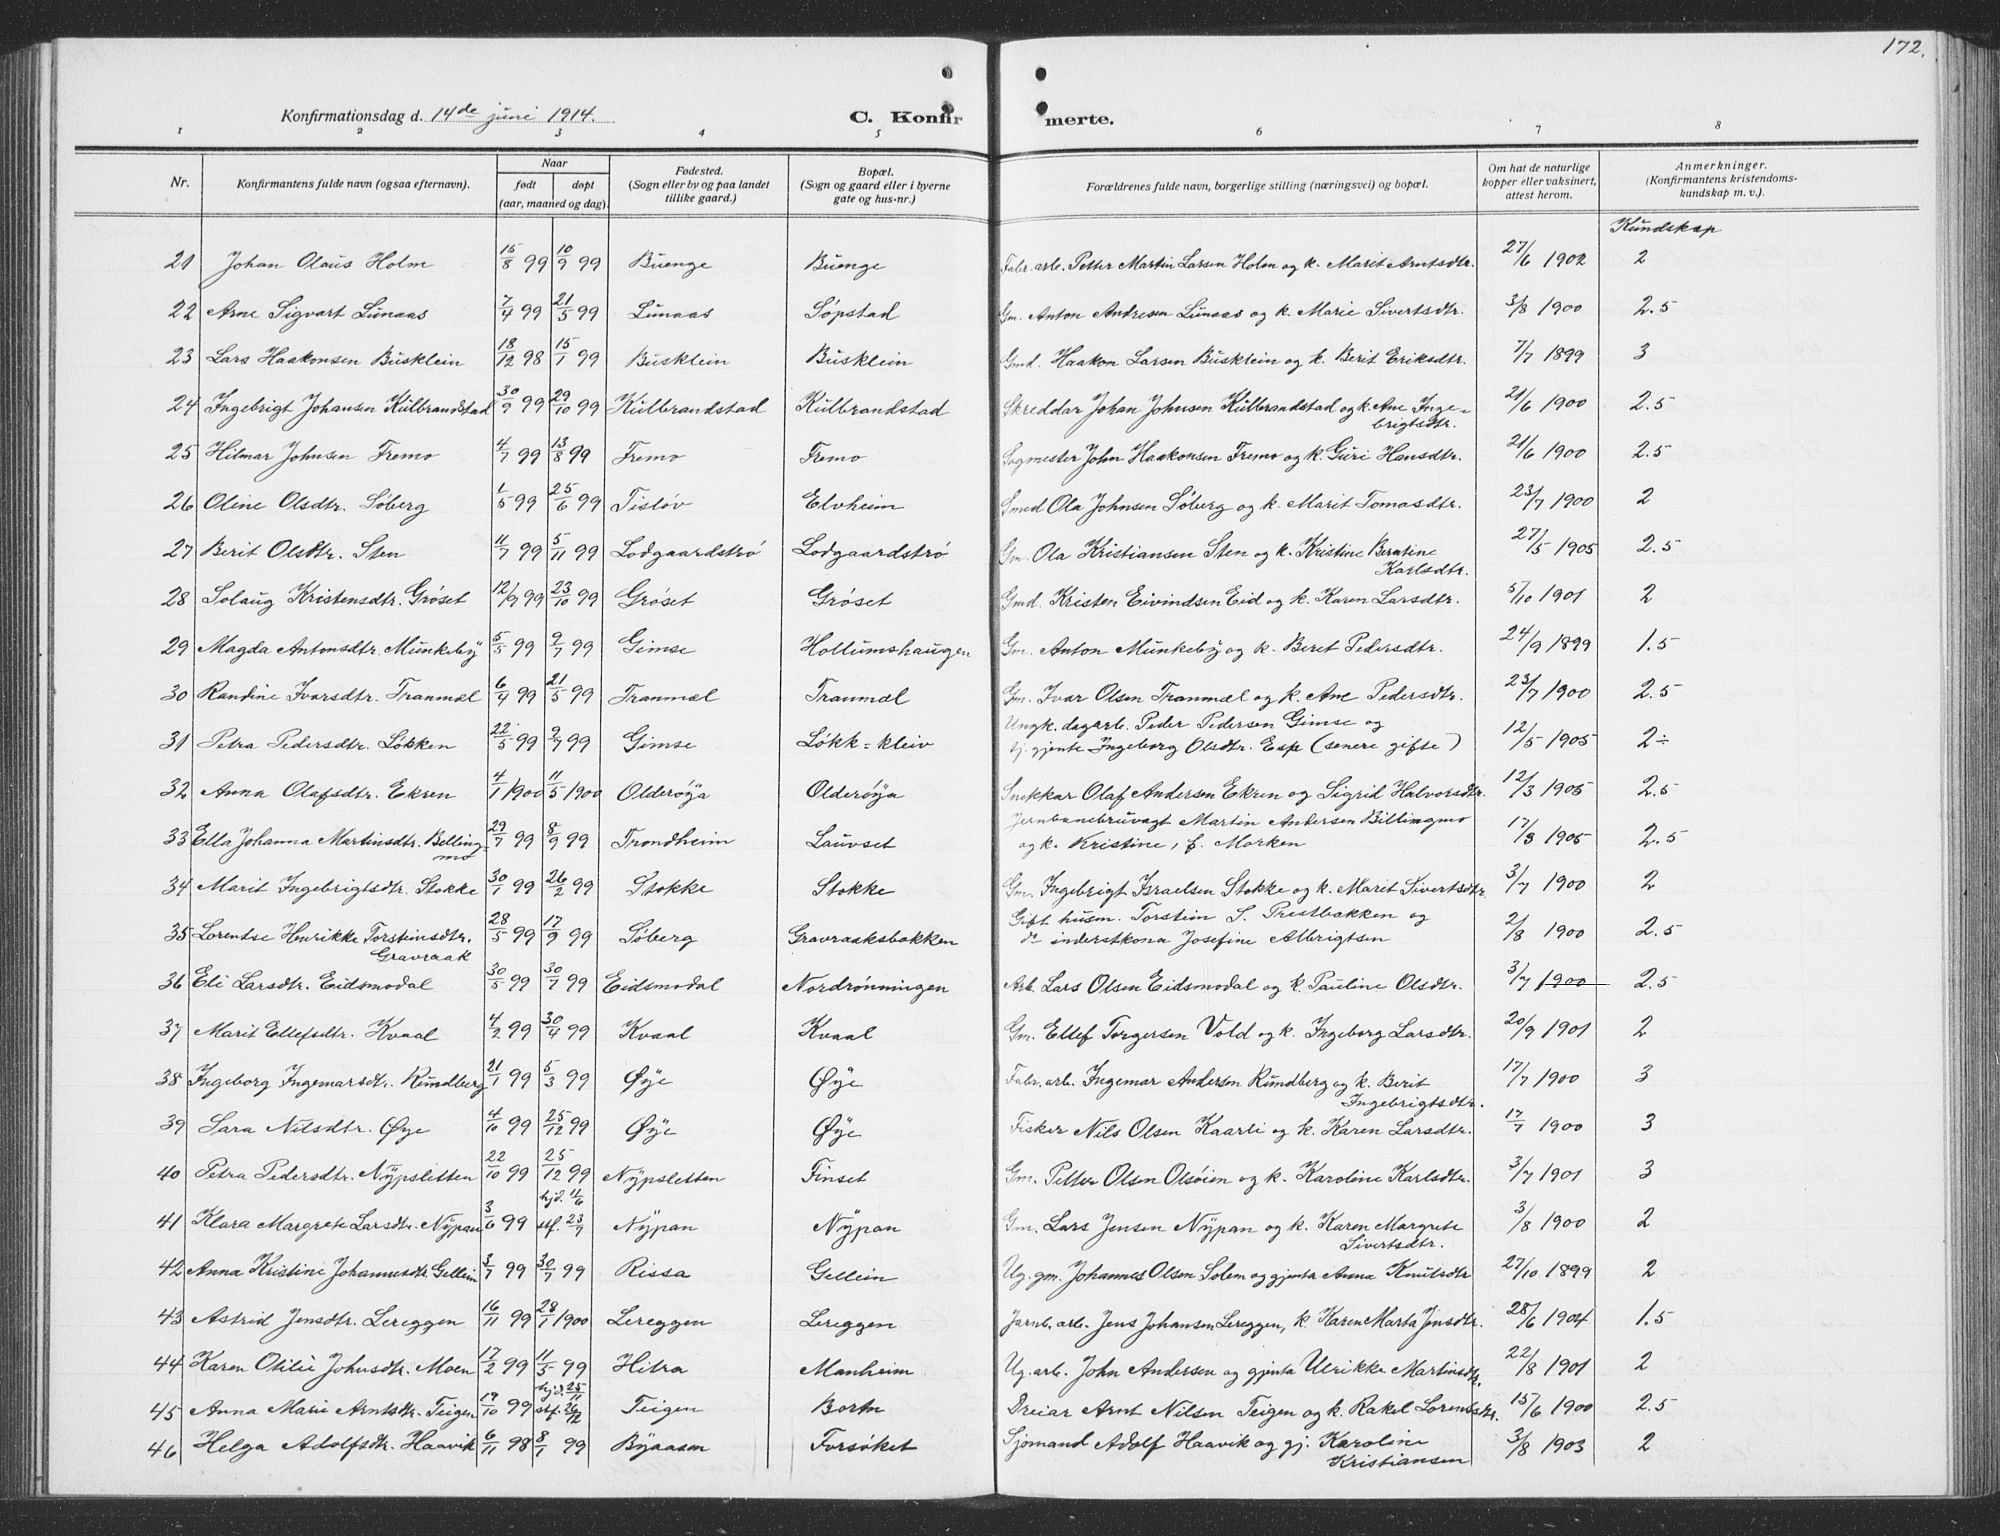 172.
Konfirmationsdag d. 14de juni 1914. C. Konfirmerte.
1 2 3 4 5 6 7 8
Nr. Konfirmantens fulde navn (ogsaa efternavn). Naar født døpt (aar, maaned og dag). Fødested. (Sogn eller by og paa landet tillike gaard.) Bopæl. (Sogn og gaard eller i byerne gate og hus-nr.) Forældrenes fulde navn, borgerlige stilling (næringsvei) og bopæl. Om hat de naturlige kopper eller vaksinert, attest herom. Anmerkninger. (Konfirmantens kristendomskundskap m. v.).
Kundskap
21 Johan Olaus Holm 15/8 99 10/9 99 Buenge Buenge Fabr. arb. Petter Martin Larsen Holm og k. Marit Arntsdtr. 27/6 1902 2
22 Arne Sigvart Lunaas 7/4 99 21/5 99 Lunaas Søpstad Gm. Anton Andresen Lunaas og k. Marie Sivertsdtr. 3/8 1900 2.5
23 Lars Haakonsen Busklein 18/12 98 15/1 99 Busklein Busklein Gmd. Haakon Larsen Busklein og k. Berit Eriksdtr. 7/7 1899 3
24 Ingebrigt Johansen Kulbrandstad 30/9 99 29/10 99 Kulbrandstad Kulbrandstad Skreddar Johan Johnsen Kulbrandstad og k. Ane Inge-
brigtsdtr. 21/6 1900 2.5
25 Hilmar Johnsen Fremo 4/7 99 13/8 99 Fremo Fremo Sagmester John Haakonsen Fremo og k. Guri Hansdtr. 21/6 1900 2.5
26 Oline Olsdtr. Søberg 1/5 99 25/6 99 Tisløv Elvheim Smed Ola Johnsen Søberg og k. Marit Tomasdtr. 23/7 1900 2
27 Berit Olsdtr. Sten 11/7 99 5/11 99 Lodgaardstrø Lodgaardstrø Gm. Ola Kristiansen Sten og k. Kristine Berntine
Karlsdtr. 27/5 1905 2.5
28 Solaug Kristensdtr. Grøset 12/9 99 23/10 99 Grøset Grøset Gmd. Kristen Eivindsen Eid og k. Karen Larsdtr. 5/10 1901 2
29 Magda Antonsdtr. Munkeby 5/5 99 9/7 99 Gimse Hollumshaugen Gm. Anton Munkeby og k. Beret Pedersdtr. 24/9 1899 1.5
30 Randine Ivarsdtr. Tranmæl 6/4 99 21/5 99 Tranmæl Tranmæl Gm. Ivar Olsen Tranmæl og k. Ane Pedersdtr. 23/7 1900 2.5
31 Petra Pedersdtr. Løkken 22/5 99 9/7 99 Gimse Løkk=kleiv Ungk. dagarb. Peder Pedersen Gimse og
tj. gjente Ingeborg Olsdtr. Esp (senere gifte) 12/5 1905 2÷
32 Anna Olafsdtr. Ekren 4/1 1900 11/5 1900 Olderøya Olderøya Snekkar Olaf Andersen Ekren og Sigrid Halvorsdtr. 12/3 1905 2.5
33 Ella Johanna Martinsdtr. Belling-
mo 29/7 99 8/9 99 Trondheim Lauvset Jernbanebruvagt Martin Andersen Billingmo
og k. Kristine, f. Morken 17/3 1905 2.5
34 Marit Ingebrigtsdtr. Stokke 30/1 99 26/2 99 Stokke Stokke Gm. Ingebrigt Israelsen Stokke og k. Marit Sivertsdtr. 3/7 1900 2
35 Lorentse Henrikke Torsteinsdtr.
Gravraak 28/5 99 17/9 99 Søberg Gravraaksbakken Gift husm. Torstein S. Prestbakken og
do inderstkona Josefine Albrigtsen 2/8 1900 2.5
36 Eli Larsdtr. Eidsmodal 30/5 99 30/7 99 Eidsmodal Nordrønningen Arb. Lars Olsen Eidsmodal og k. Pauline Olsdtr. 3/7 1900 2.5
37 Marit Ellefsdtr. Kvaal 4/2 99 30/4 99 Kvaal Kvaal Gm. Ellef Torgersen Vold og k. Ingeborg Larsdtr. 20/9 1901 2
38 Ingeborg Ingemarsdtr. Rundberg 21/1 99 5/3 99 Øye Øye Fabr. arb. Ingemar Andersen Rundberg og k. Berit
Ingebrigtsdtr. 17/7 1900 3
39 Sara Nilsdtr. Øye 4/10 99 25/12 99 Øye Øye Fisker Nils Olsen Kaarli og k. Karen Larsdtr. 17/7 1900 3
40 Petra Pedersdtr. Nypsletten 22/10 99 25/12 99 Nypsletten Finset Gm. Petter Olsen Olsøien og k. Karoline Karlsdtr. 3/7 1901 3
41 Klara Margrete Larsdtr. Nypan 3/6 99 hjd. 11/6 stf. 23/7 Nypan Nypan Gm. Lars Jensen Nypan og k. Karen Margrete
Sivertsdtr. 3/8 1900 2
42 Anna Kristine Johannesdtr. Gellein 3/7 99 30/7 99 Rissa Gellein Ug. gm. Johannes Olsen Solem og gjenta Anna Knutsdtr 27/10 1899 2
43 Astrid Jensdtr. Lereggen 16/11 99 28/1 1900 Lereggen Lereggen Jarnb. arb. Jens Johansen Lereggen, k. Karen Marta Jensdtr. 28/6 1904 1.5
44 Karen Otilie Johnsdtr. Moen 17/2 99 11/5 99 Hitra Manheim Ug. arb. John Andersen og gjenta Ulrikke Martinsdtr. 22/8 1901 2
45 Anna Marie Arntsdtr. Teigen 19/10 99 hjd. 25/11 stf. 26/12 Teigen Bortn Dreiar Arnt Nilsen Teigen og k. Rakel Lorentsdtr. 15/6 1900 2.5
46 Helga Adolfsdtr. Haavik 6/11 98 8/1 99 Byaasen Forsøket Sjømand Adolf Haavik og gj. Karoline
Kristiansen 3/8 1903 2